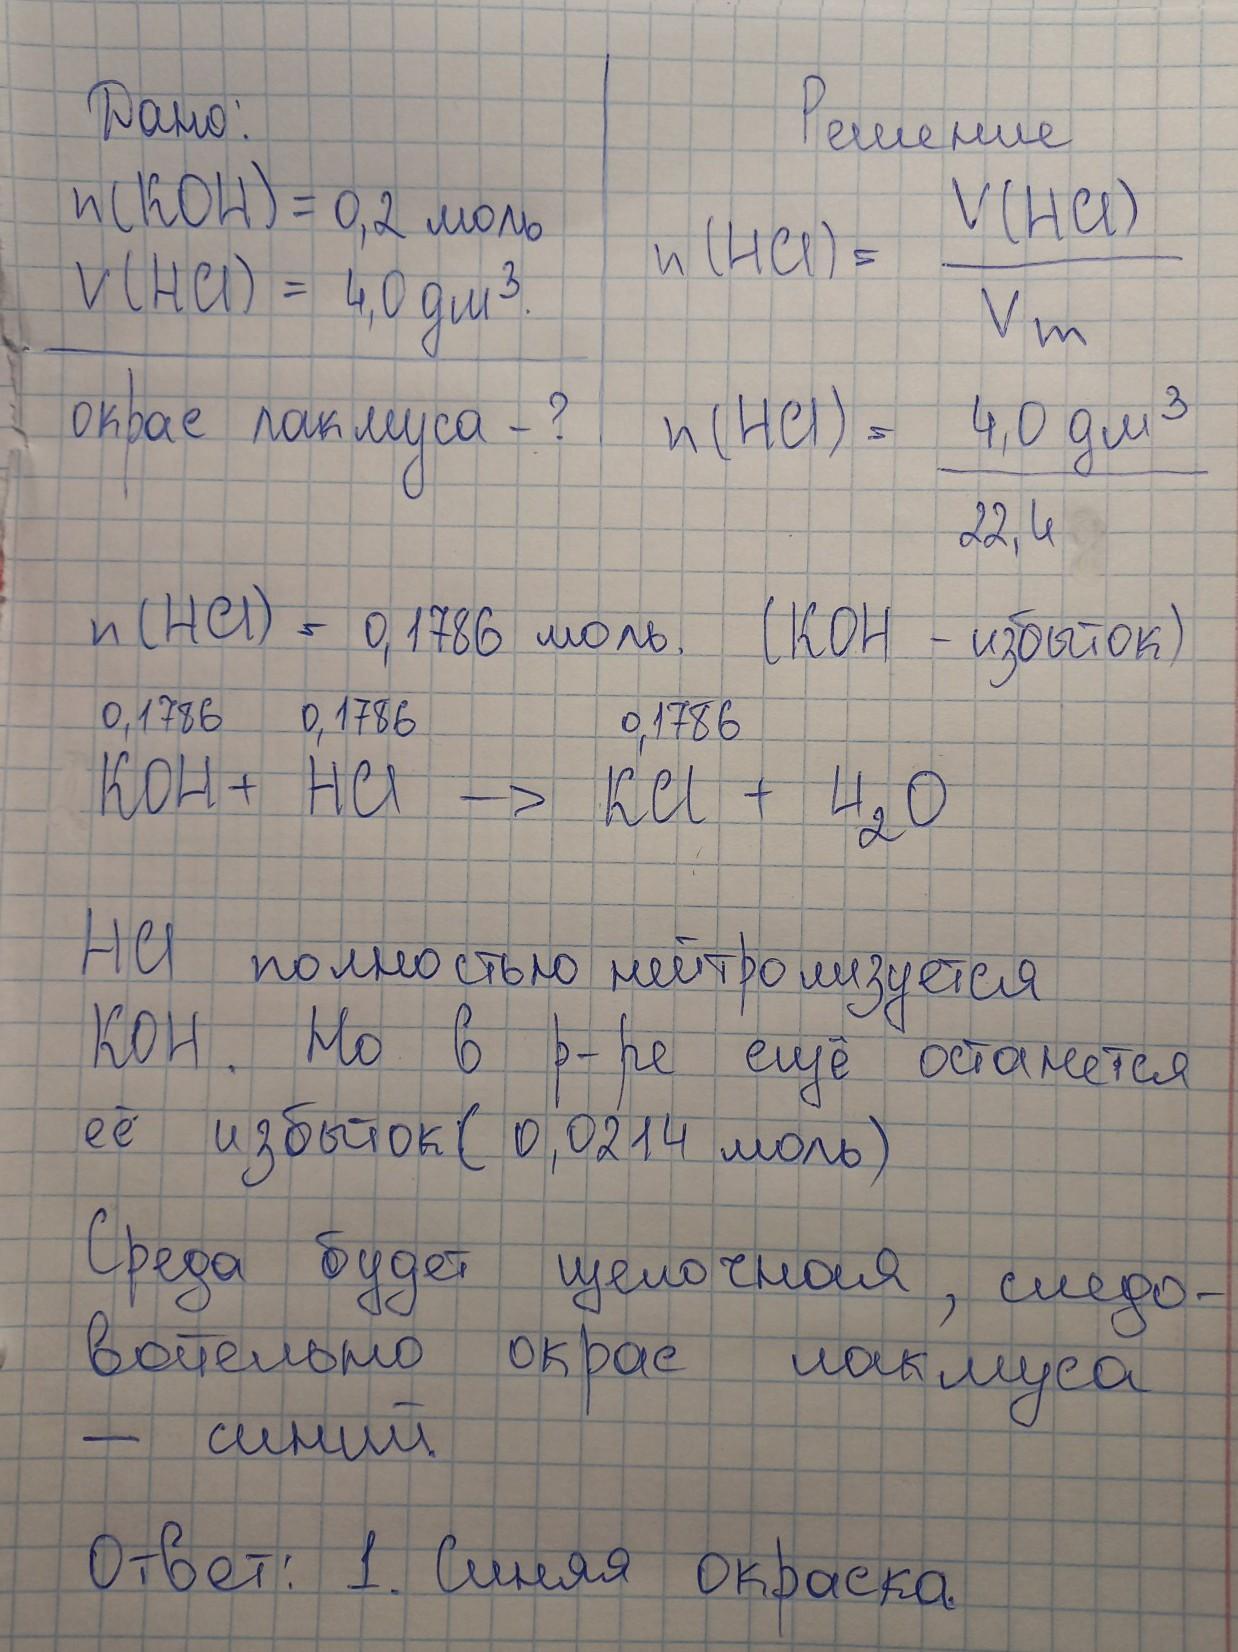 Дано:
n(KOH) = 0,2 моль
V(HCl) = 4,0 дм³.
окрас лакмуса - ?
Решение
n(HCl) = V(HCl)
Vm
n(HCl) = 4,0 дм³
22,4
n(HCl) = 0,1786 моль. (KOH - избыток)
0,1786 0,1786 0,1786
KOH + HCl —> KCl + H₂O
HCl полностью нейтролизуется
KOH. Но в р-ре ещё останется
её избыток (0,0214 моль)
Среда будет щелочная, следо-
вательно окрас лакмуса
— синий.
Ответ: 1. Синяя окраска.